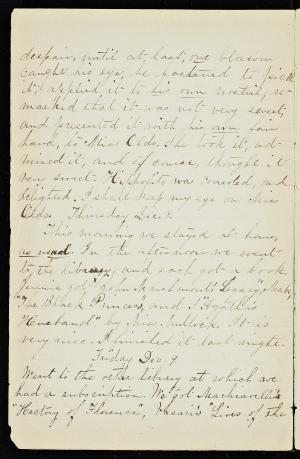 despair, until at last, one blossom
caught his eye; he hastened to pick
it; applied it to his own nostril, re-
marked that it was not very sweet,
and presented it with his own fair
hand, to Miss Olds. She took it, ad-
mired it, and of course, thought it
very sweet. Hippolito was consoled, and
delighted. I shall keep my eye on Miss
Olds. Thursday Dec. 8.
This morning we stayed at home,
as usual. In the afternoon we went
to the library, and each got a book.
Jennie got "John Marchmont's Legacy", Mabe,
"The Black Prince", and I "Agatha's
Husband", by Miss Mullock. It is
very nice. I finished it last night.
Friday Dec. 9
Went to the other library at which we
had a subscription. We got Machiavelli's
"History of Florence", Vasari's "Lives of the